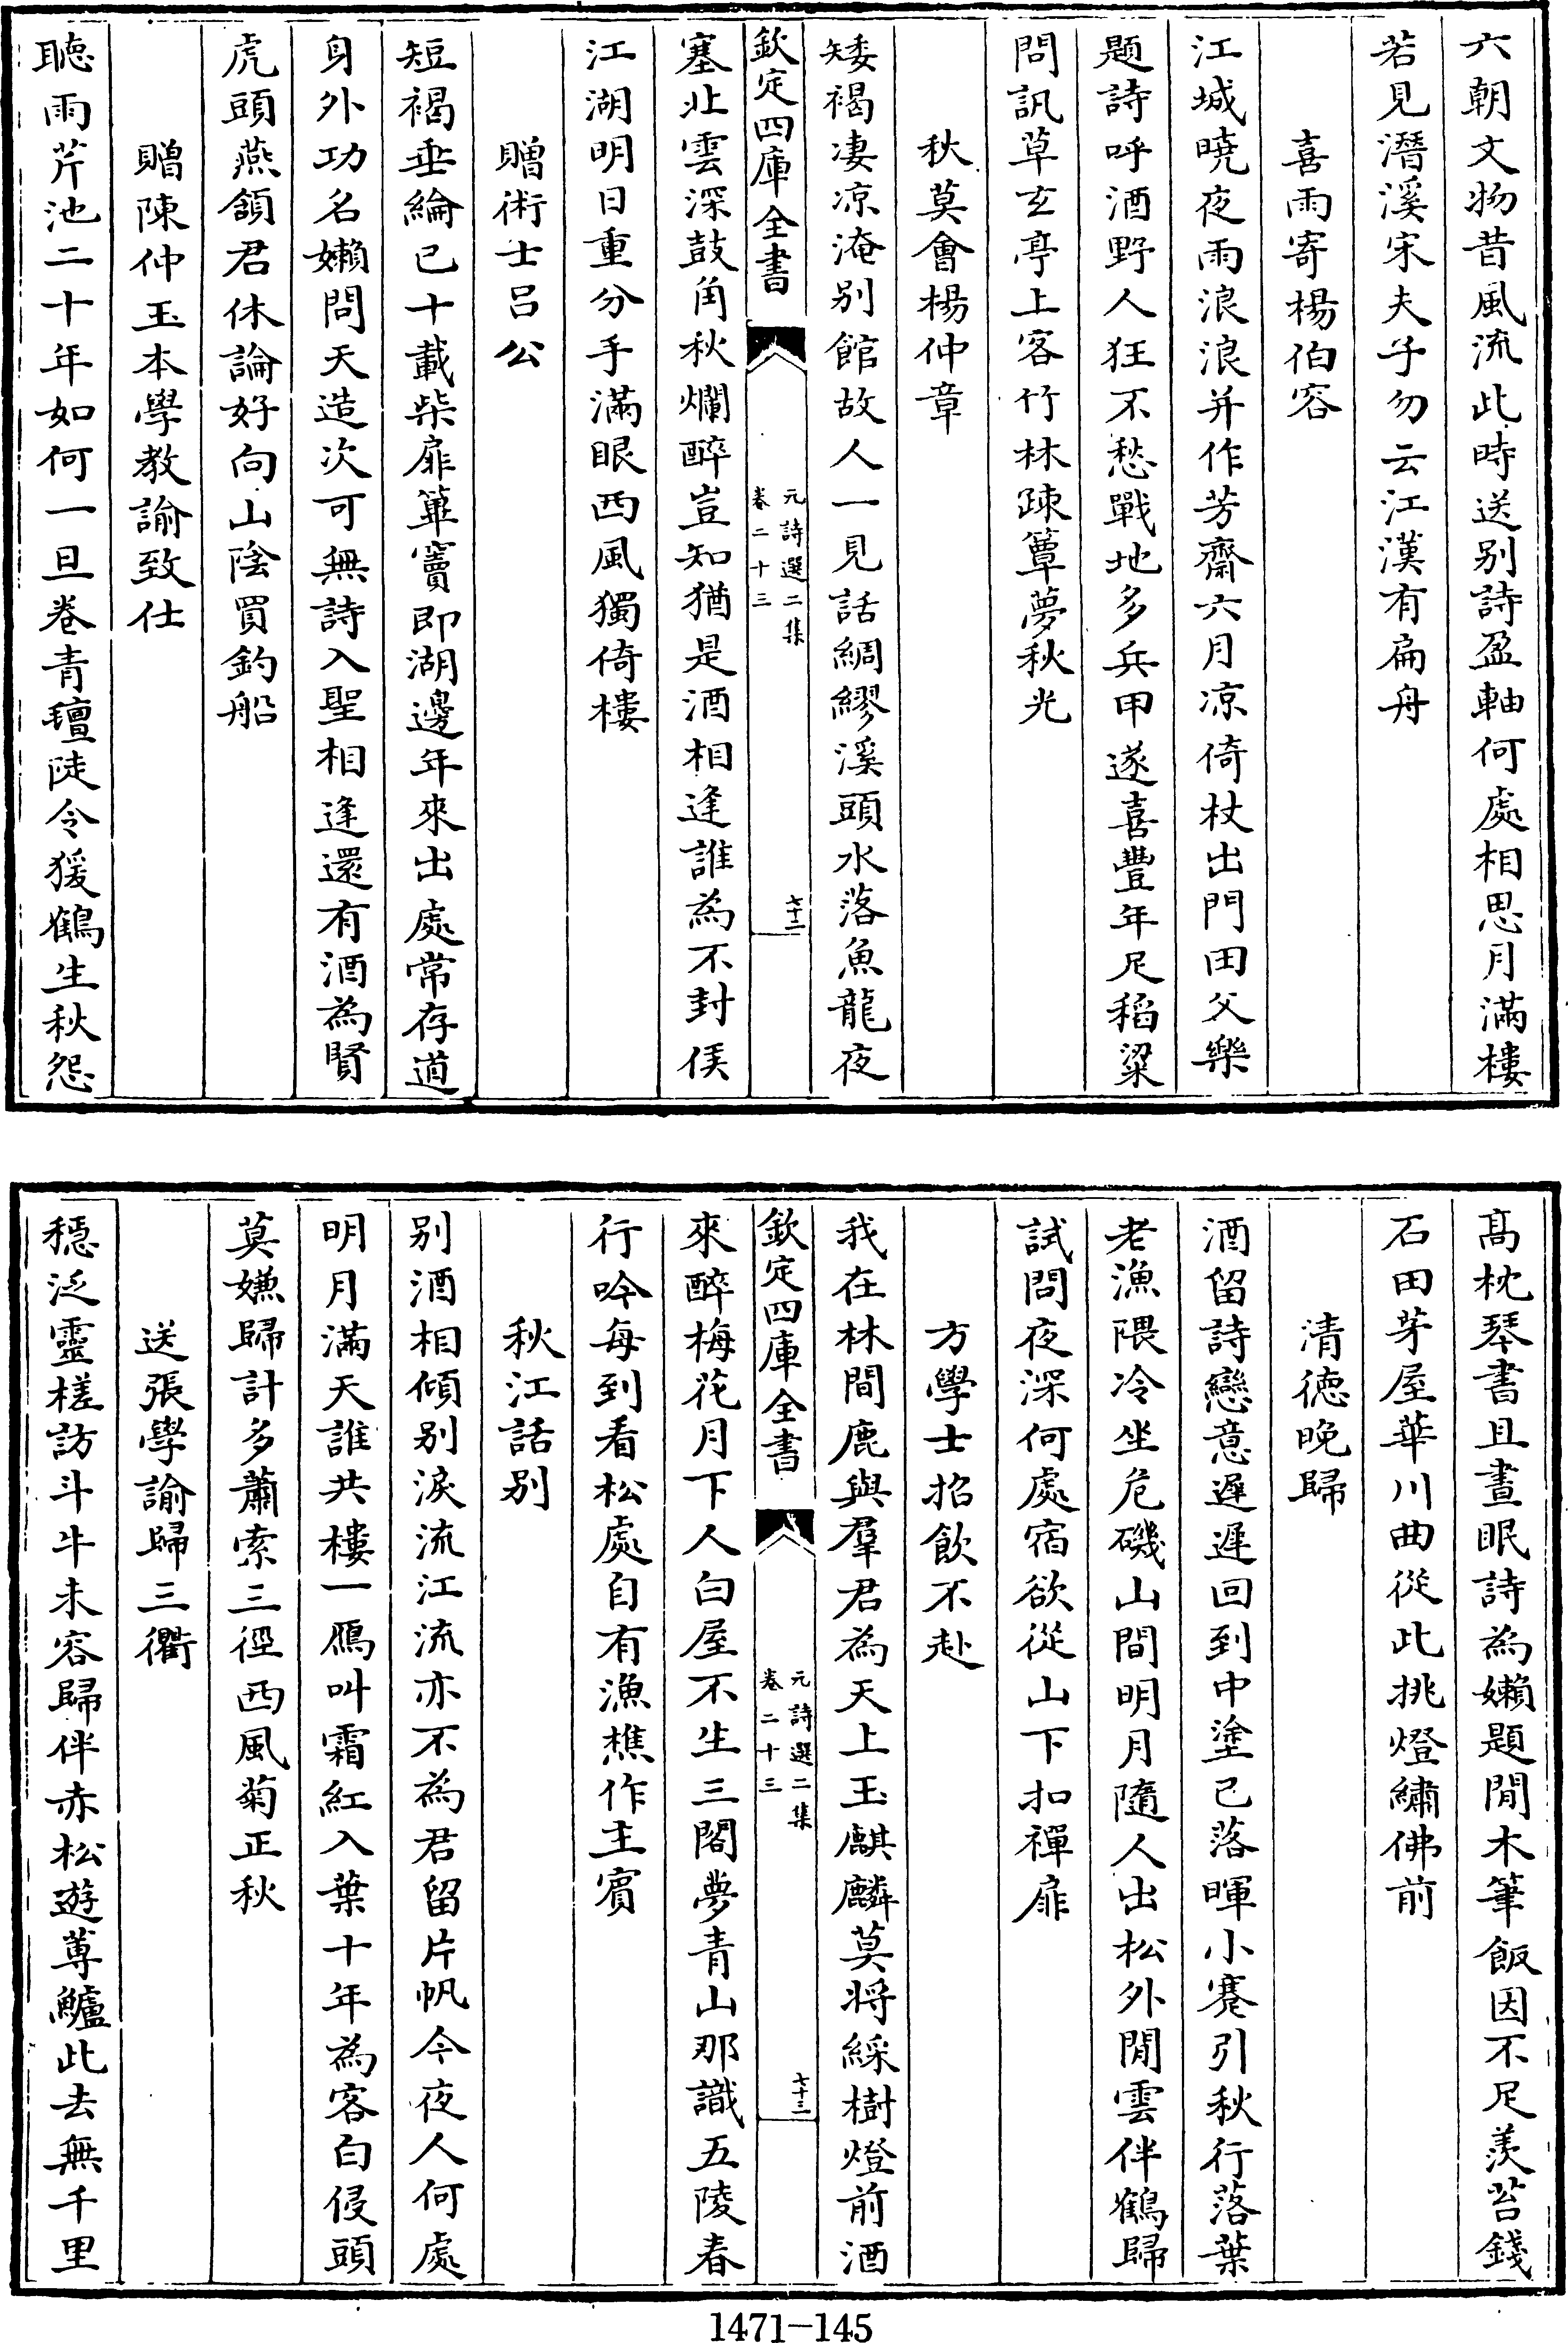 六朝文物昔風流此時送别詩盈軸何處相思月滿樓
若見潛溪宋夫子勿云江漢有扁舟
喜雨寄楊伯容
江城曉夜雨浪浪并作芳齋六月凉倚杖出門田父樂
題詩呼酒野人狂不愁戰地多兵甲遂喜豐年足稻粱
問訊草玄亭上客竹林疎簟夢秋光
秋莫會楊仲章
矮褐淒凉淹别館故人一見話綢繆溪頭水落魚龍夜
欽定四庫全書
元詩選二集
卷二十三
七十二
塞北雲深鼓角秋爛醉豈知猶是酒相逢誰為不封侯
江湖明日重分手滿眼西風獨倚樓
贈術士呂公
短褐垂綸已十載柴扉篳竇即湖邊年來出處常存道
身外功名嬾問天造次可無詩入聖相逢還有酒為賢
虎頭燕頷君休論好向山陰買釣船
贈陳仲玉本學教諭致仕
聽雨芹池二十年如何一旦卷青氊陡令猨鶴生秋怨
髙枕琴書且晝眠詩為嬾題閒木筆飯因不足羨苔錢
石田茅屋華川曲從此挑燈繡佛前
清徳晚歸
酒留詩戀意遲遲回到中塗已落暉小蹇引秋行落葉
老漁隈冷坐危磯山間明月隨人出松外閒雲伴鶴歸
試問夜深何處宿欲從山下扣禪扉
方學士招飲不赴
我在林間鹿與羣君為天上玉麒麟莫將綵樹燈前酒
欽定四庫全書
元詩選二集
卷二十三
七十三
來醉梅花月下人白屋不生三閣夢青山那識五陵春
行吟每到看松處自有漁樵作主賓
秋江話别
别酒相傾别淚流江流亦不為君留片帆今夜人何處
明月滿天誰共樓一鴈叫霜紅入葉十年為客白侵頭
莫嫌歸計多蕭索三徑西風菊正秋
送張學諭歸三衢
穩泛靈槎訪斗牛未容歸伴赤松遊蓴鱸此去無千里
1471-145